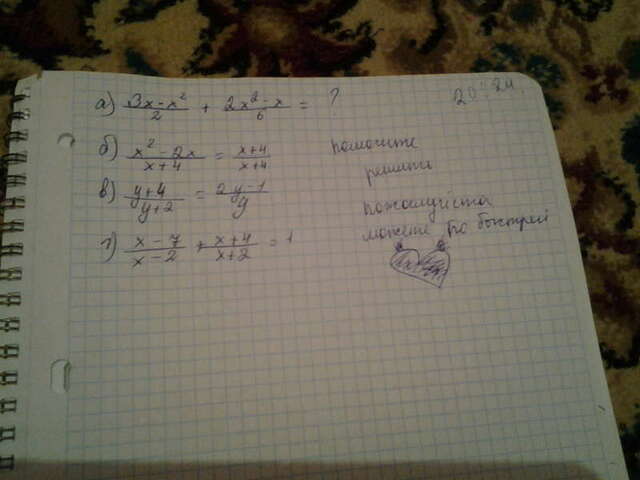 а) (3x-x²)/2 + (2x²-x)/6 = ?
20:24
б) (x²-2x)/(x+4) = (x+4)/(x+4)
в) (y+4)/(y+2) = (2y-1)/y
г) (x-7)/(x-2) + (x+4)/(x+2) = 1
помогите
решить
пожалуйста
можете по быстрей